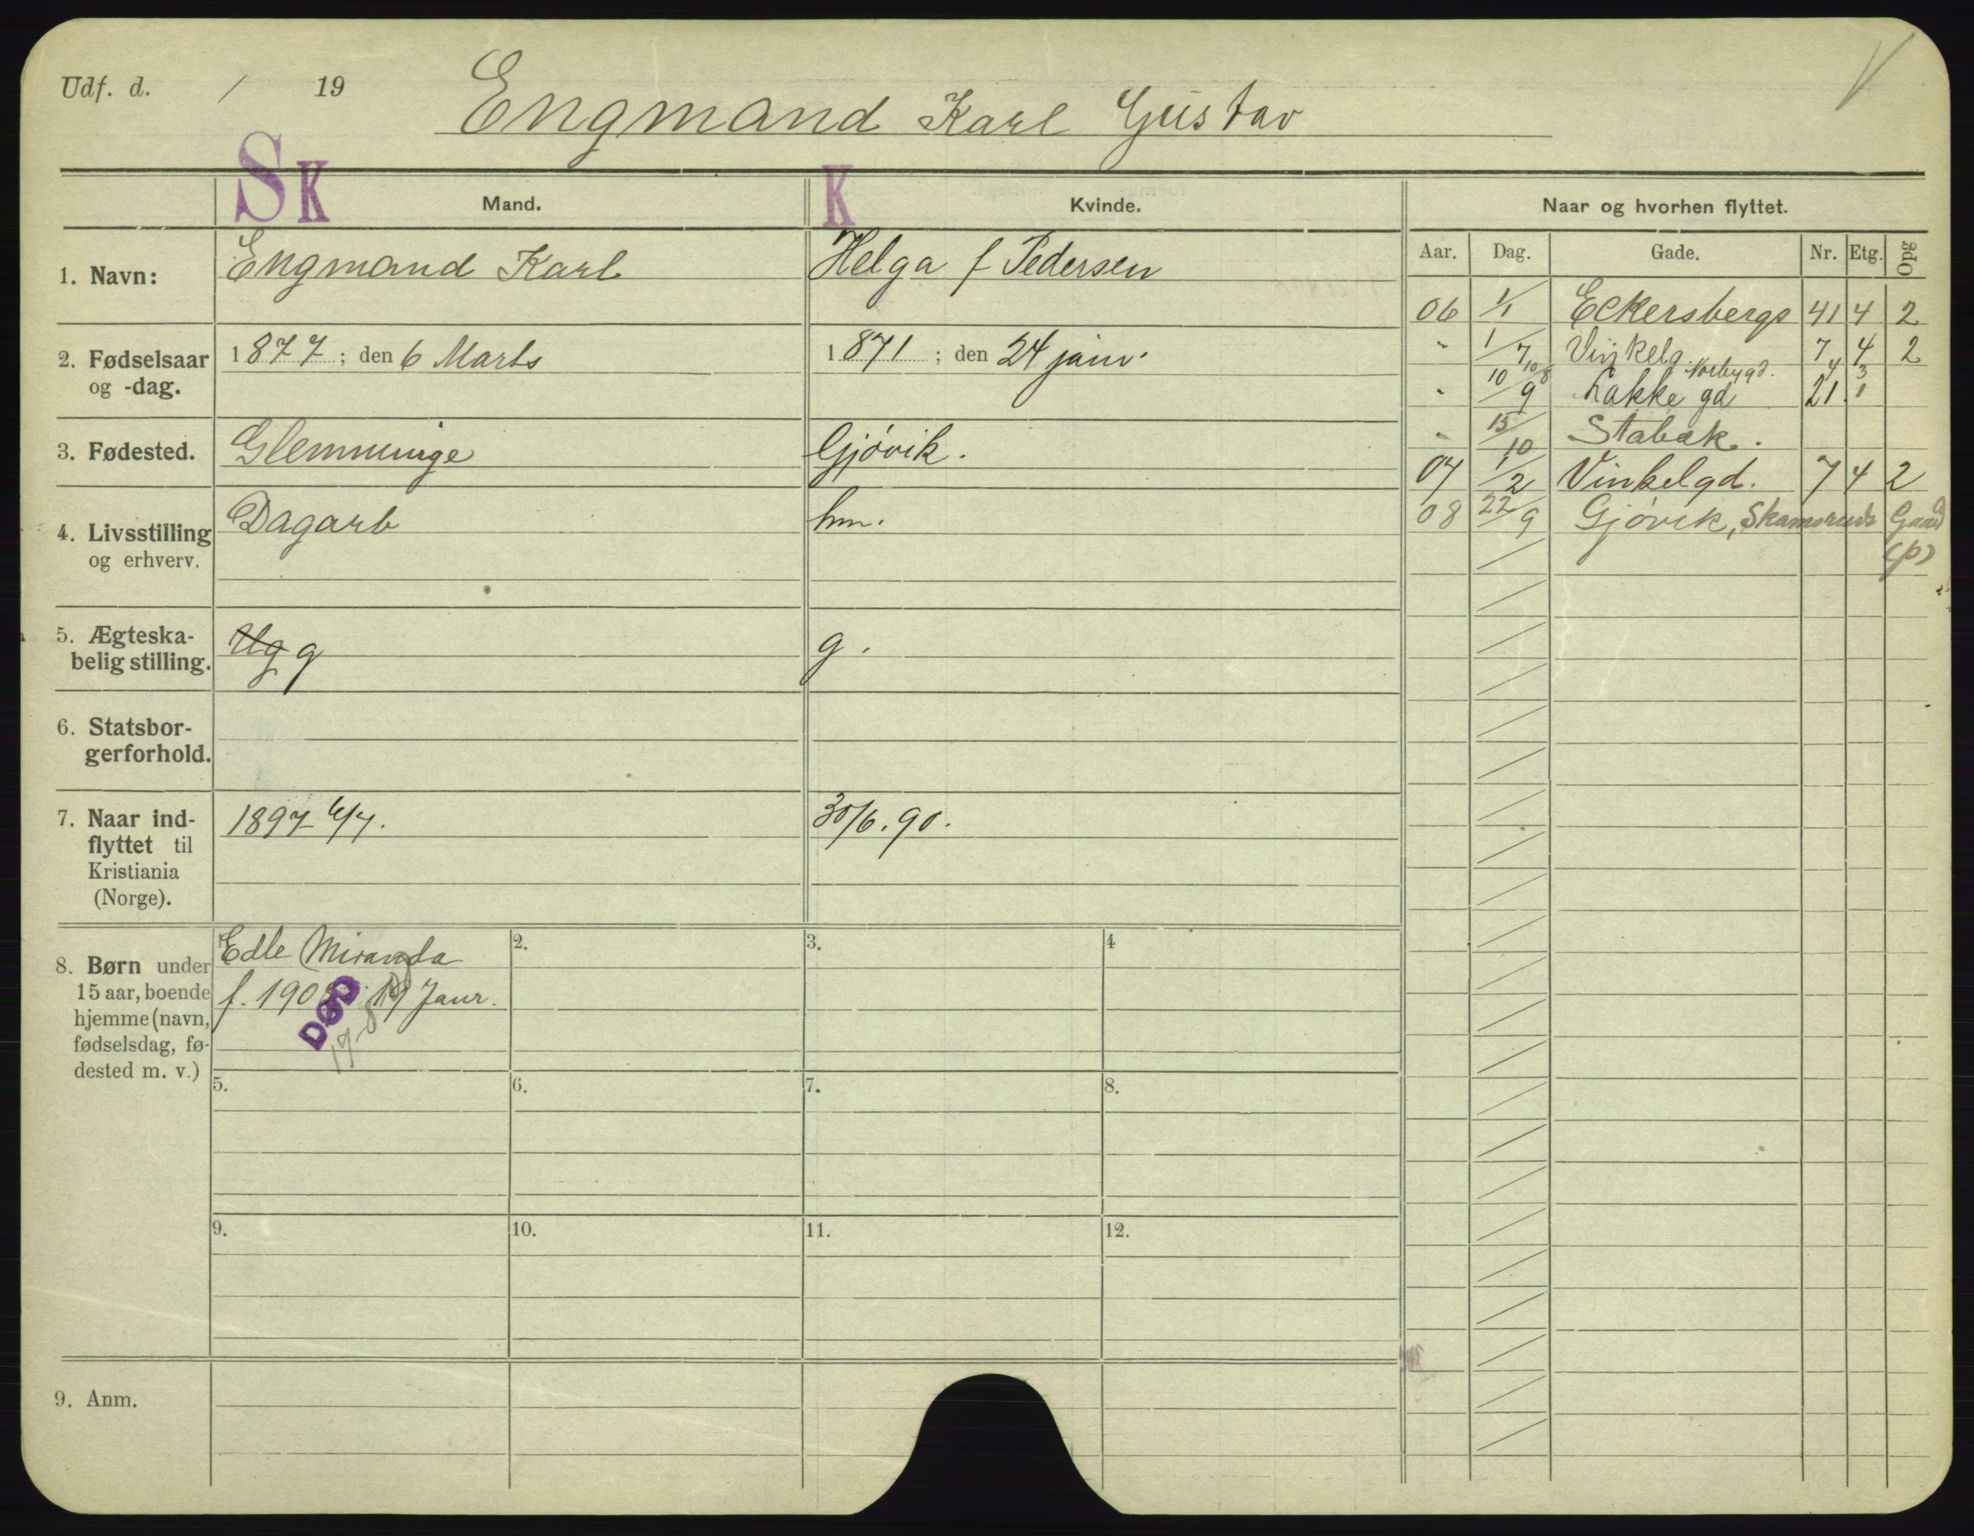 Udf. d. / 19
Engmand Karl Gustav
V
SK Mand.
K Kvinde.
Naar og hvorhen flyttet.
Aar. Dag. Gade. Nr. Etg. Opg
1. Navn: Engmand Karl
Helga f Pedersen
2. Fødselsaar og -dag.
1877; den 6 Marts
1871; den 24 janv.
3. Fødested. Glemminge
Gjøvik.
4. Livsstilling og erhverv.
Dagarb
hm.
5. Ægteska-
belig stilling.
Ug g
g.
6. Statsbor-
gerforhold.
7. Naar ind-
flyttet til
Kristiania
(Norge).
1897 6/7.
30/6.90.
8. Børn under
15 aar, boende
hjemme (navn,
fødselsdag, fø-
dested m. v.)
Edle Miranda
f. 1908 19 Janr.
DØD
2.
3.
4
5.
6.
7.
8.
9.
10.
11.
12.
9. Anm.
06 1/1 Eckersbergs 41 4 2
" 1/7 Vinkelg. 7 4 2
10/8 Norbygd. 4 3
" 10/9 Lakkegd 21 1
" 15/10 Stabæk.
07 1/2 Vinkelgd. 7 4 2
08 22/9 Gjøvik, Skamsruds Gaard
(p)